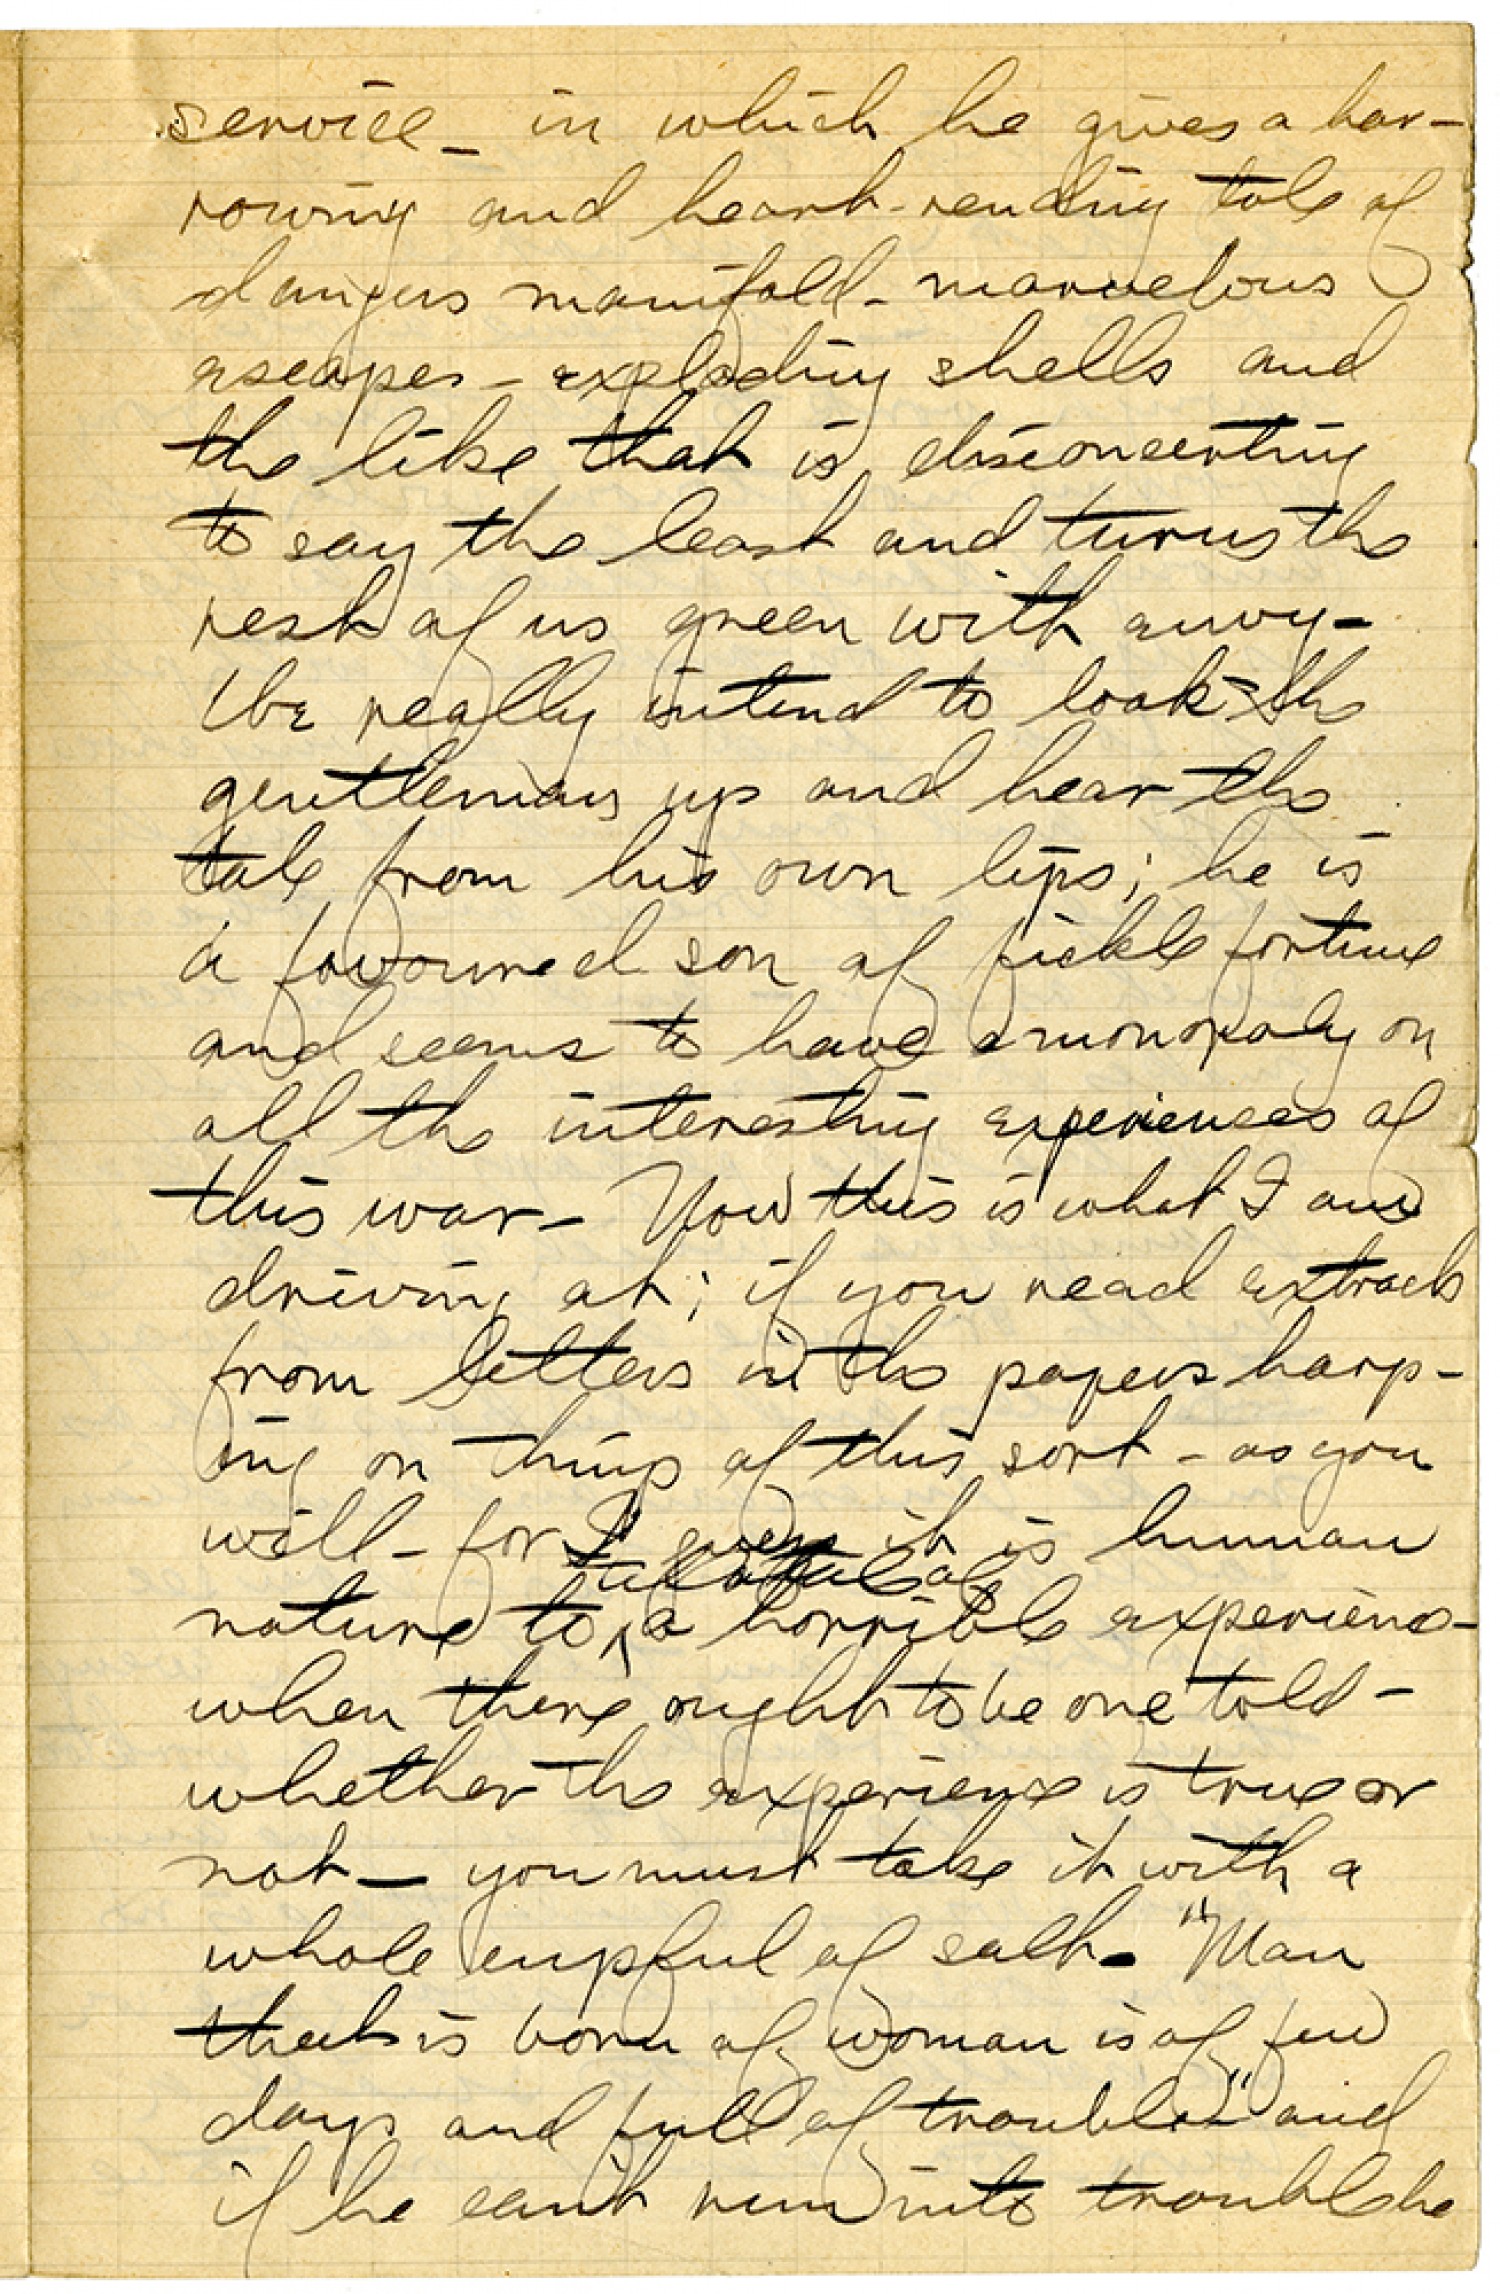 service - in which he gives a har-
rowing and heart-rending tale of
dangers manifold - marvelous
escapes - exploding shells and
the like that is disconcerting
to say the least and turns the
rest of us green with envy -
We really intend to look the
gentleman up and hear the
tale from his own lips; he is
a favoured son of fickle fortune
and seems to have a monopoly on
all the interesting experiences of
this war - Now this is what I am
driving at; if you read extracts
from letters in the papers harp-
ing on things of this sort - as you
will - for I guess it is human
tell a tale of
nature to ^ a horrible experience -
when there ought to be one told -
whether the experience is true or
not - you must take it with a
whole cupful of salt. "Man
that is born of woman is of few
days and full of trouble" and
if he can't run into trouble he